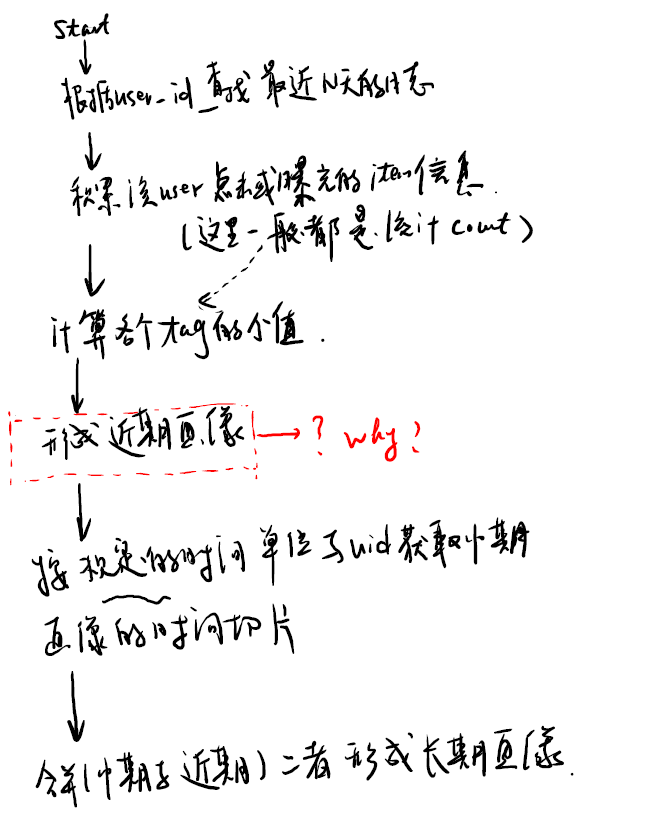 Start
根据user_id 查找 最近N天的日志
积累该user 点击或曝光的item信息.
(这里一般都是统计count)
计算各个tag的个值.
形成近期画像 → ? why?
按规定的时间单位与uid获取中期
画像的时间切片
合并(中期与近期)二者形成长期画像.